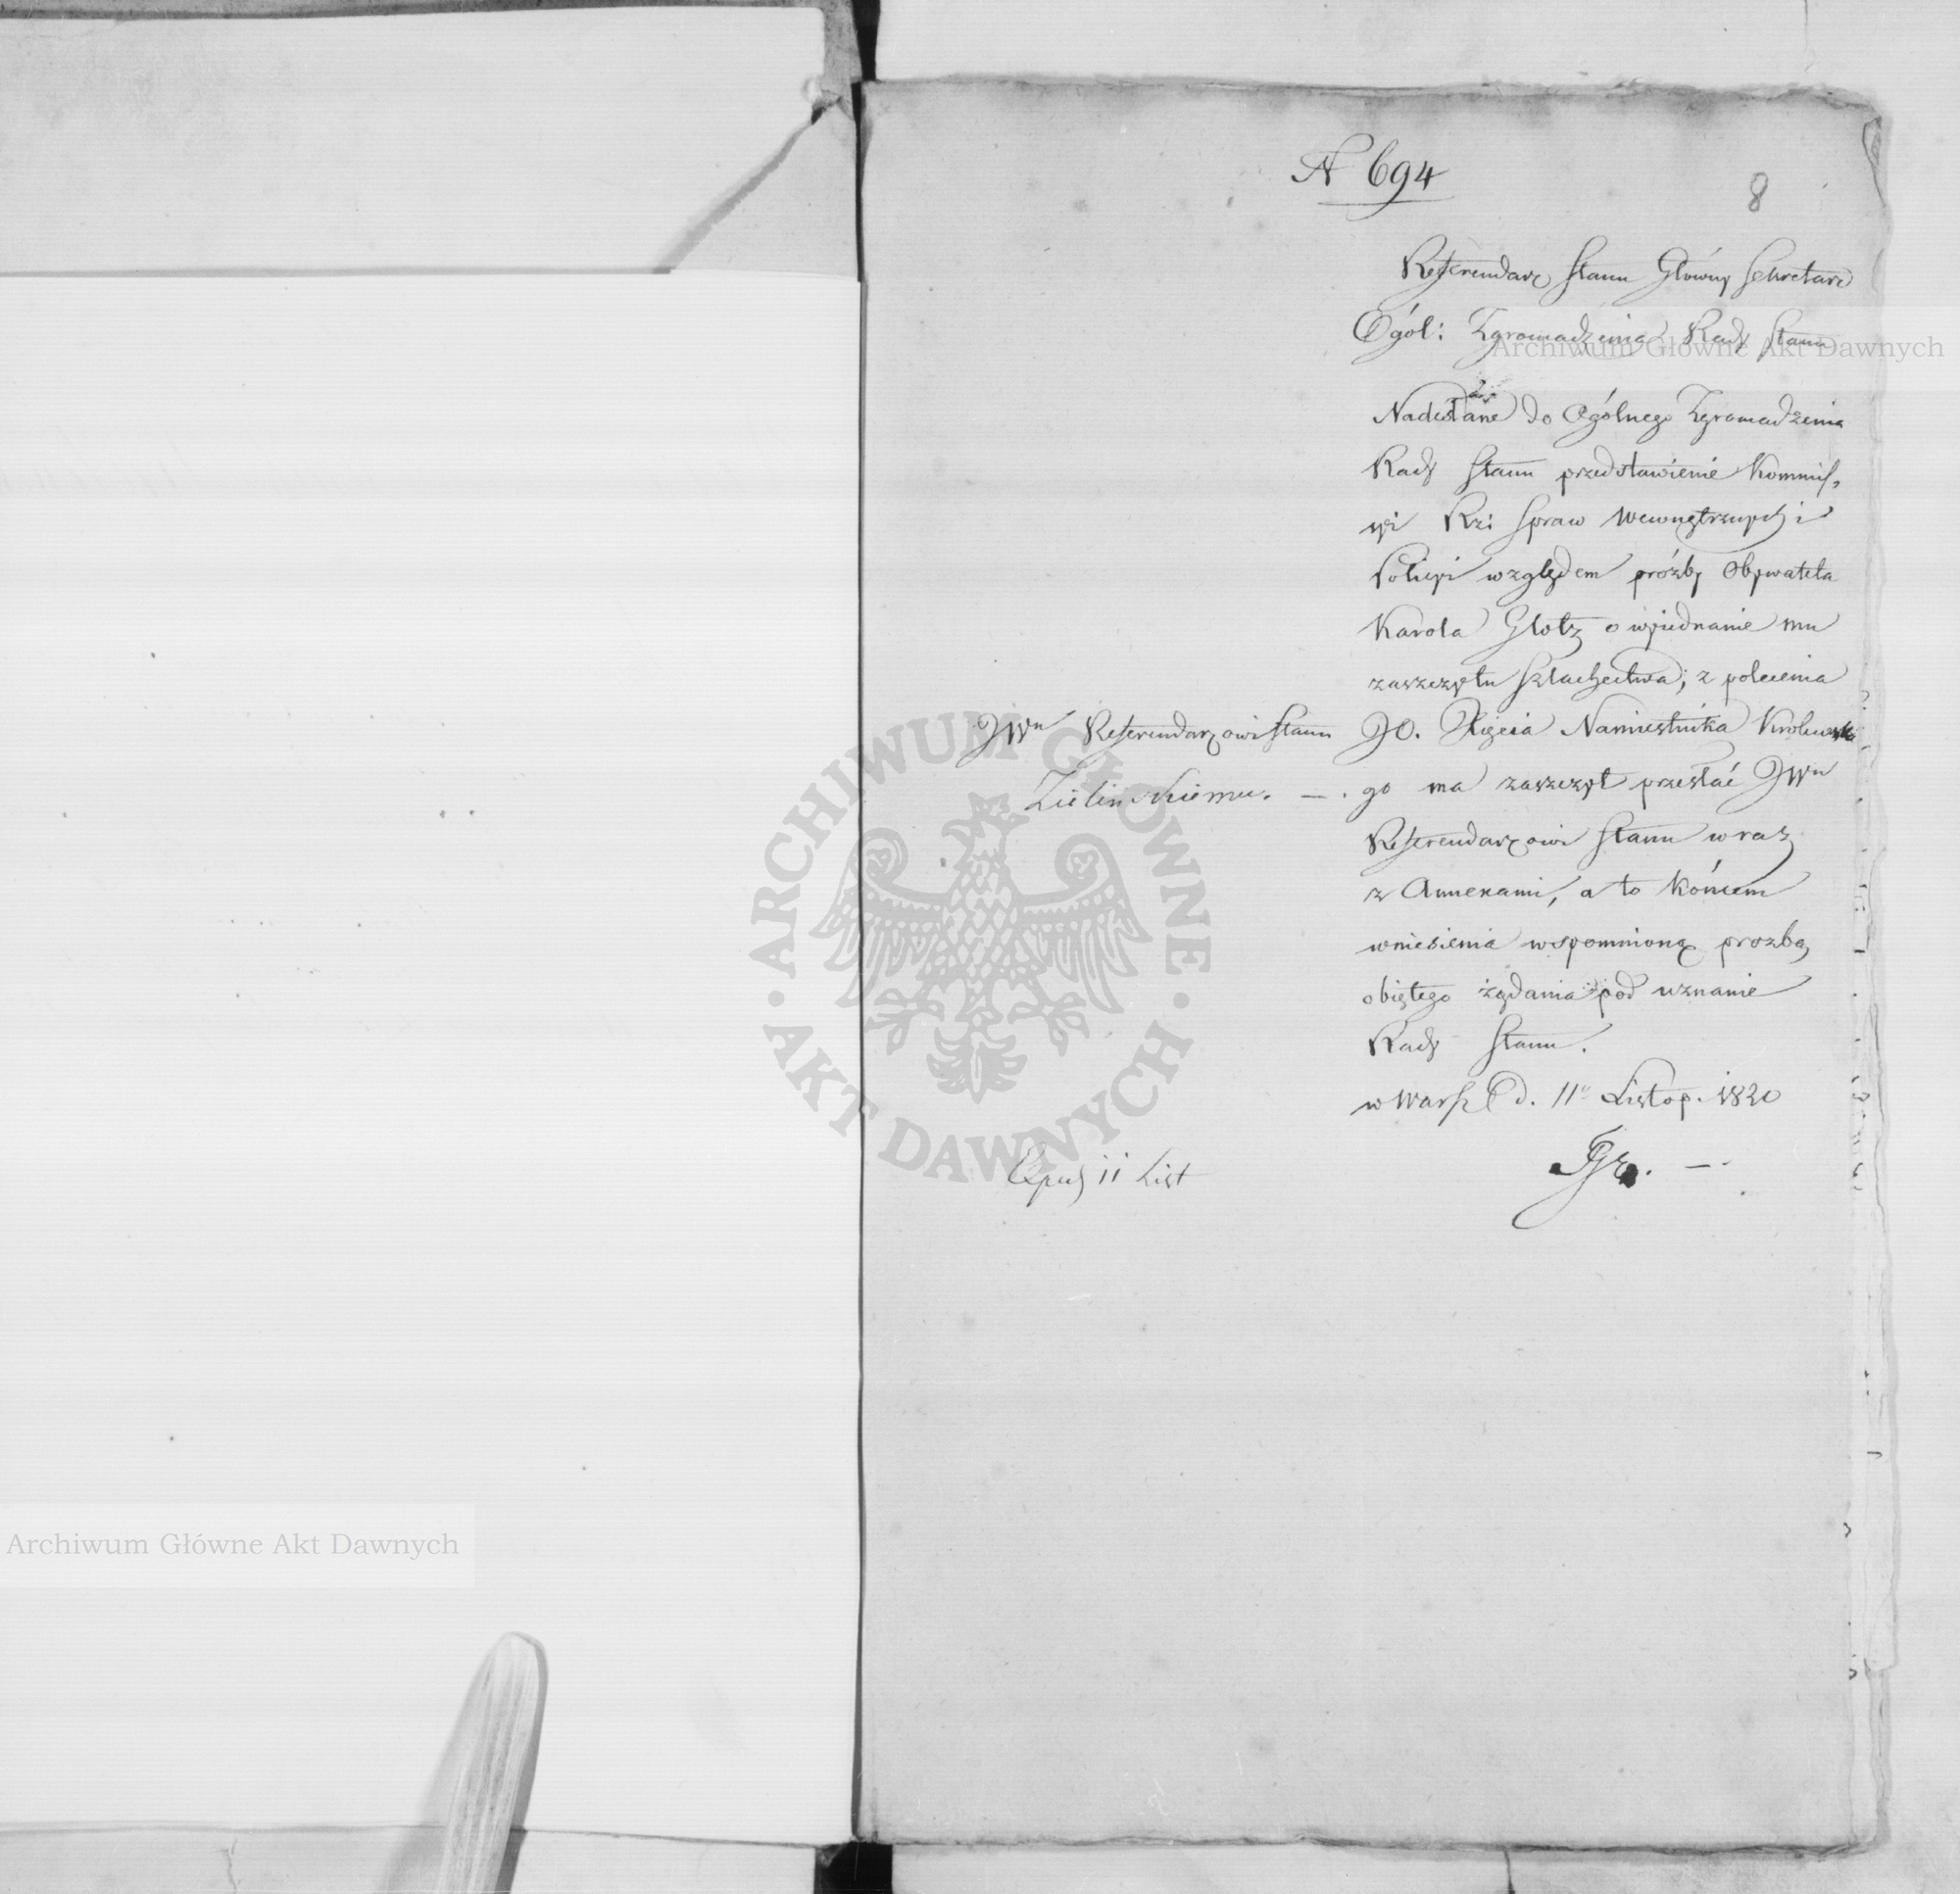 N 694
8
Referendarz Stanu Główny Sekretarz
Ogól: Zgromadzenia Rady Stanu
Nadesłane do Ogólnego Zgromadzenia
Rady Stanu przedstawienie Kommiss,
yi Rz: Spraw Wewnętrznych i
Policyi względem prózby Obywatela
Karola Glotz o wyiednanie mu
zaszczytu Szlachectwa; z polecenia
JO. Xięcia Namiestnika Krolewskie
go ma zaszczyt przesłać JWu
Referendarzowi Stanu wraz
z Annexami, a to końcem
wniesienia wspomnioną prozbą
obiętego żądania pod uznanie
Rady Stanu.
w Warsz d. 11 Listop. 1820
JWu Referendarzowi Stanu
Zielinskiemu. —.
11 List
Archiwum Główne Akt Dawnych
Archiwum Główne Akt Dawnych
ARCHIWUM GŁÓWNE • AKT DAWNYCH •